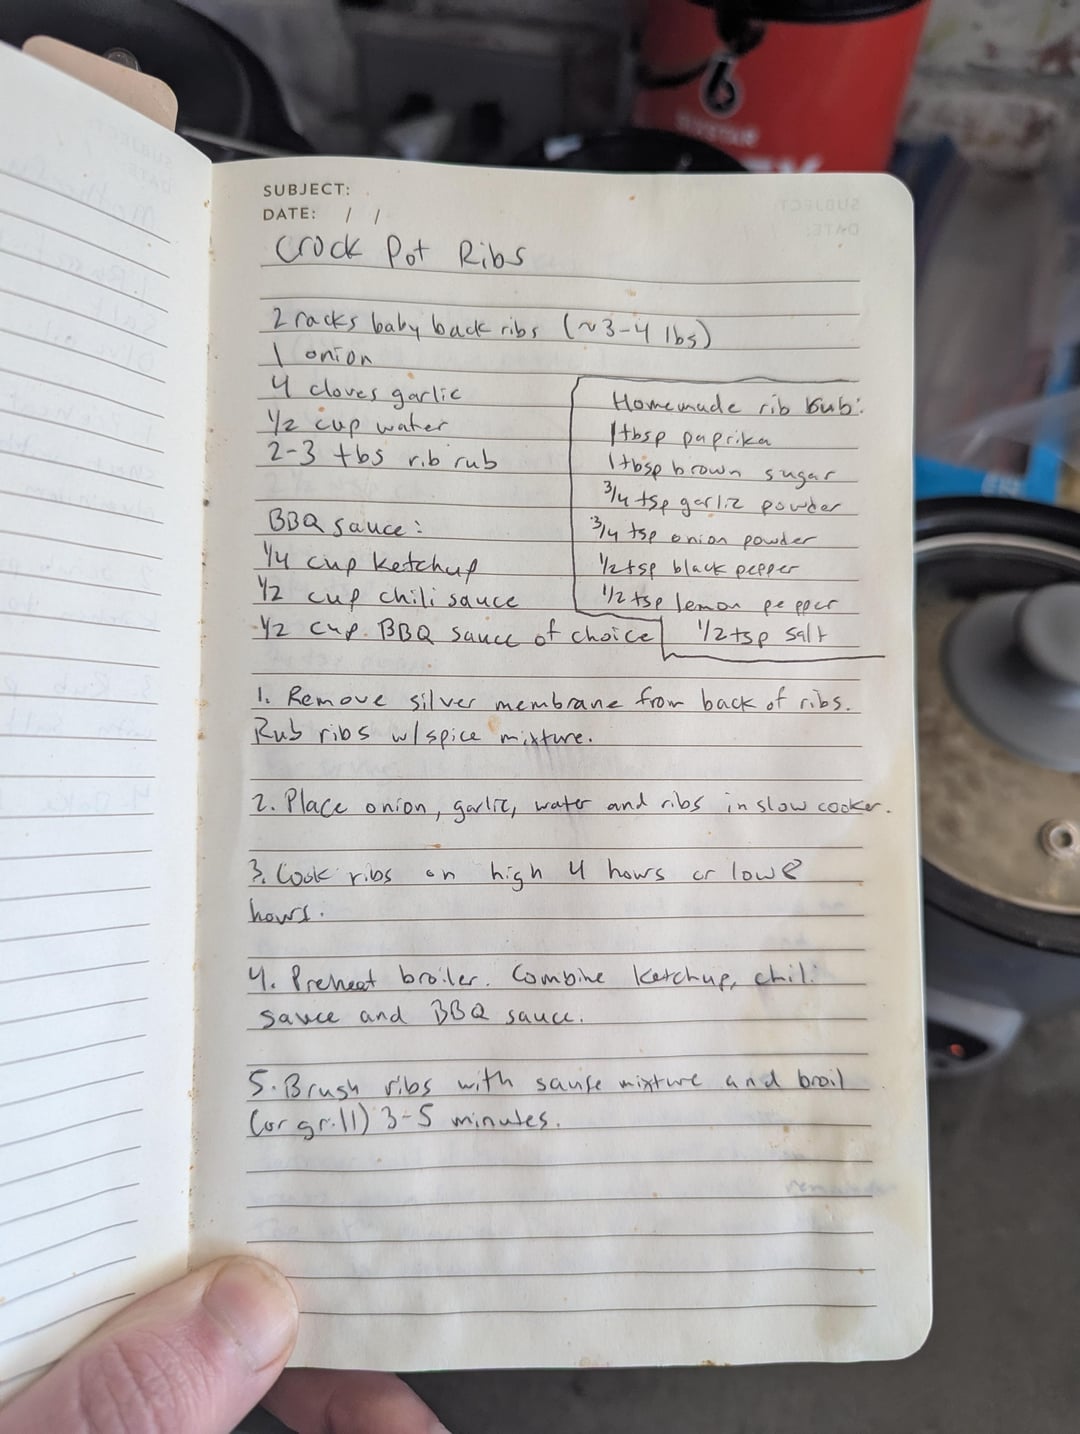 SUBJECT:
DATE: / /
Crock Pot Ribs
2 racks baby back ribs (~3-4 lbs)
1 onion
4 cloves garlic
1/2 cup water
2-3 tbs rib rub
BBQ sauce:
1/4 cup ketchup
1/2 cup chili sauce
1/2 cup BBQ sauce of choice
Homemade rib rub:
1 tbsp paprika
1 tbsp brown sugar
3/4 tsp garlic powder
3/4 tsp onion powder
1/2 tsp black pepper
1/2 tsp lemon pepper
1/2 tsp salt
1. Remove silver membrane from back of ribs.
Rub ribs w/ spice mixture.
2. Place onion, garlic, water and ribs in slow cooker.
3. Cook ribs on high 4 hours or low 8
hours.
4. Preheat broiler. Combine ketchup, chili
sauce and BBQ sauce.
5. Brush ribs with sause mixture and broil
(or grill) 3-5 minutes.